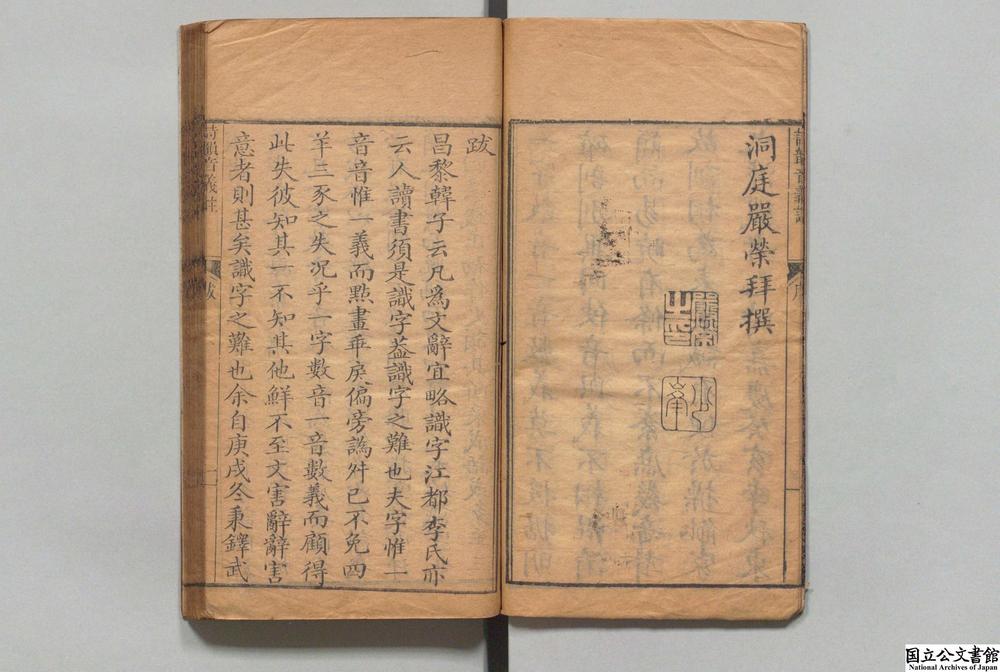 洞庭嚴榮拜撰
跋
昌黎韓子云凡爲文辭宜略識字江都李氏亦
云人讀書須是識字葢識字之難也夫字惟一
音音惟一義而點畫乖戾偏旁譌舛已不免四
羊三豕之失况乎一字數音一音數義而顧得
此失彼知其一不知其他鮮不至文害辭辭害
意者則甚矣識字之難也余自庚戌冬秉鐸武
詩韻音義註
跋
一
国立公文書館
National Archives of Japan